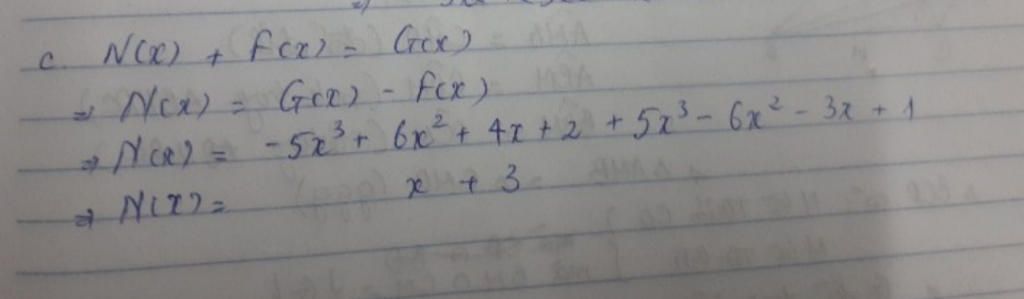 c. N(x) + F(x) = G(x)
⇒ N(x) = G(x) - F(x)
⇒ N(x) = -5x³ + 6x² + 4x + 2 + 5x³ - 6x² - 3x + 1
⇒ N(x) = x + 3